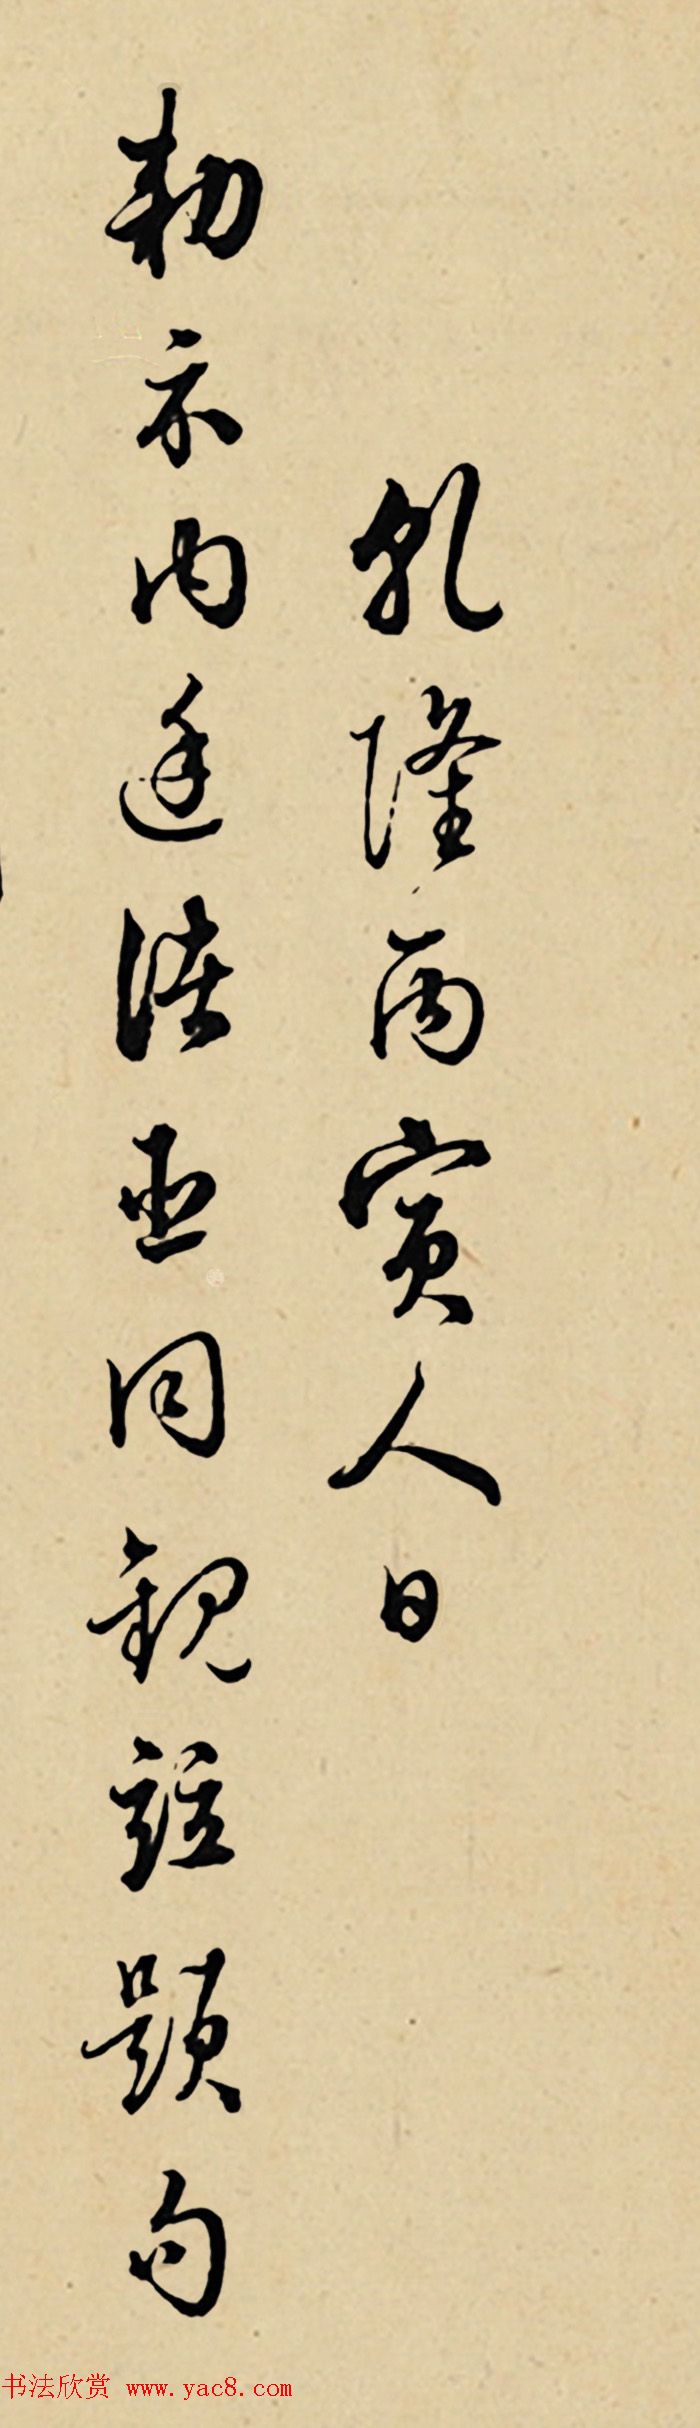 乾隆丙寅人日
勅示内廷諸臣同觀竝題句
书法欣赏 www.yac8.com